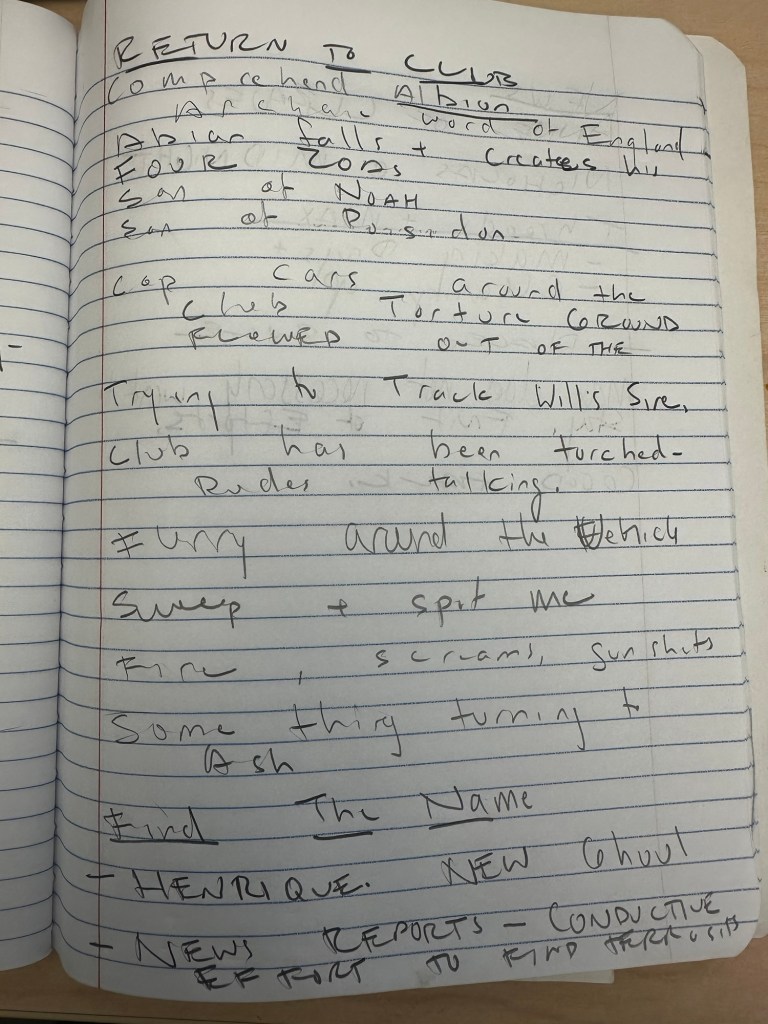 RETURN TO CLUB
Comprehend Albion
Archaic word of England
Abian falls + creates his
FOUR ZOAs
Son of NOAH
Son of Posidon
cop cars around the
Club Torture GROUND
FLOWED OUT OF THE
Trying to Track Will's Sire.
Club has been torched-
Rudes talking.
Flurry around the Vehicle
Sweep + spot me
Fire, screams, gun shots
Some thing turning to
Ash
Find The Name
- HENRIQUE. NEW Ghoul
- NEWS REPORTS - CONDUCTIVE
EFFORT TO FIND TERROSITS